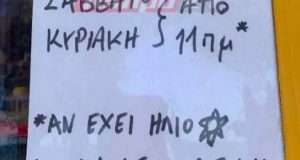 ΣΑΒΒΑΤΟ ΑΠΟ
ΚΥΡΙΑΚΗ 11πμ*
*ΑΝ ΕΧΕΙ ΗΛΙΟ